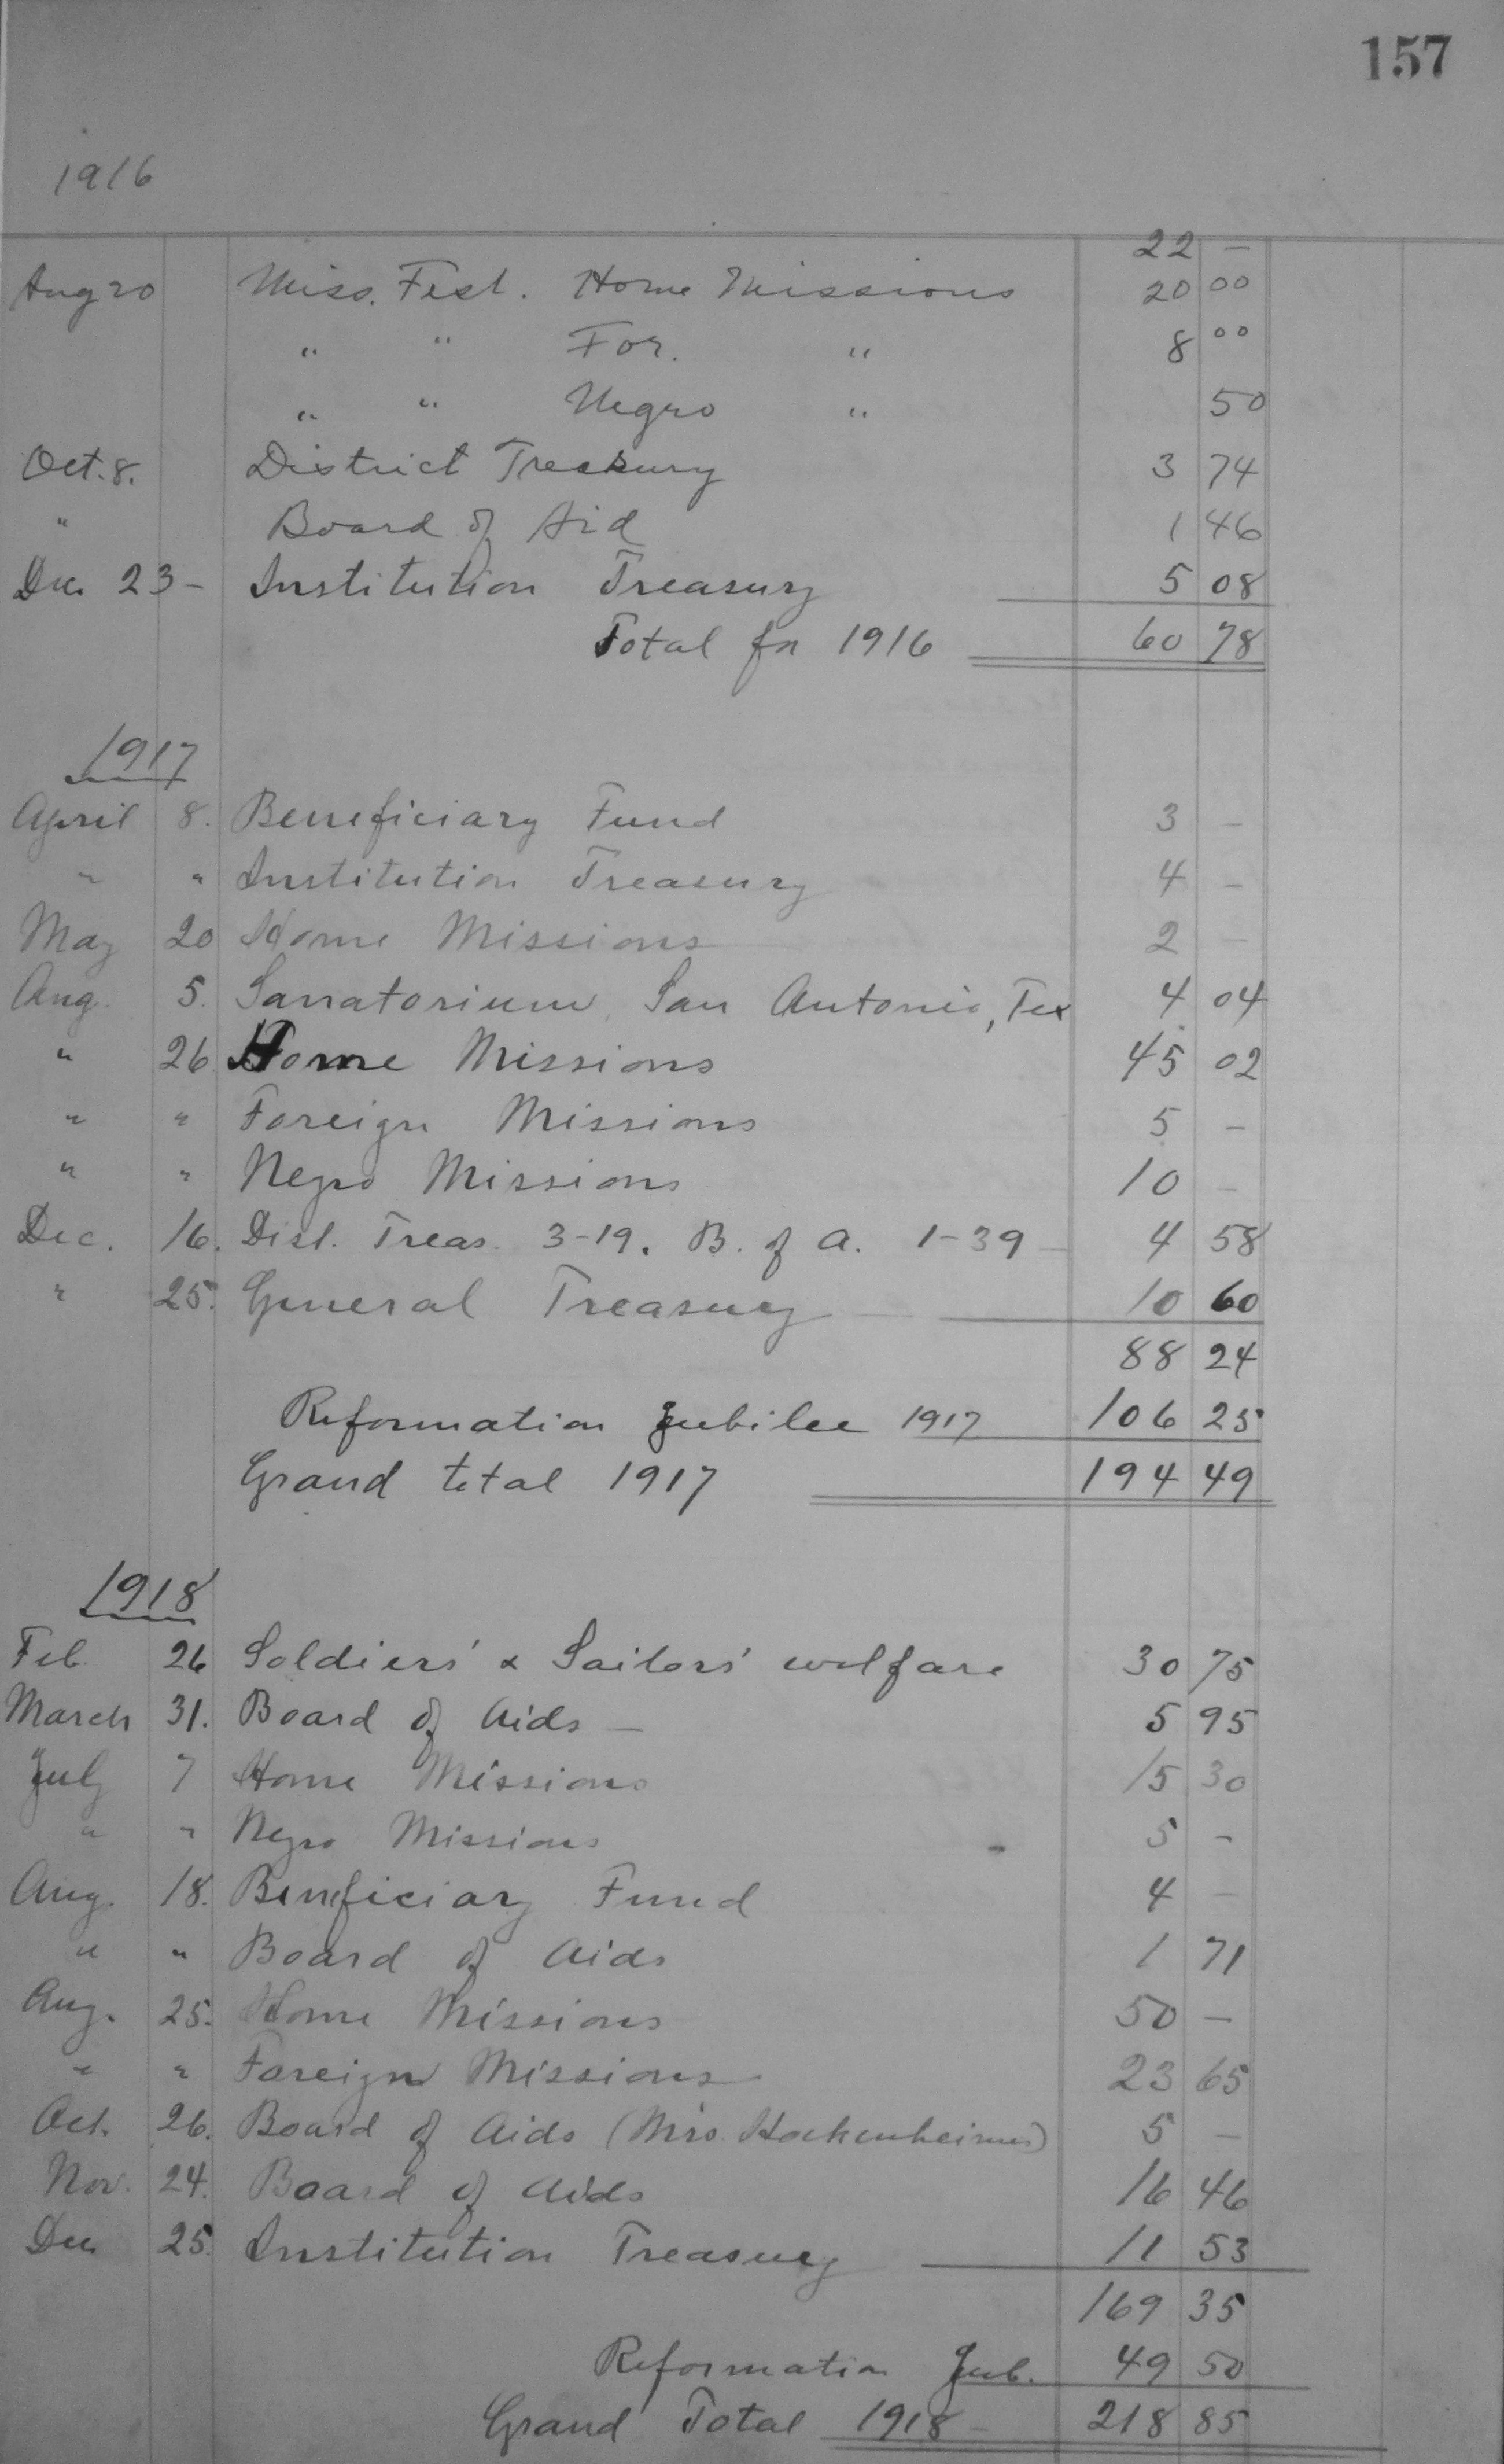 157
1916
22 —
Aug 20 Miss. Fest. Home Missions 20 00
" " For. " 8 00
" " Negro " 50
Oct. 8. District Treasury 3 74
" Board of Aid 1 46
Dec. 23 – Institution Treasury 5 08
Total for 1916 60 78
1917
April 8. Beneficiary Fund 3 —
" " Institution Treasury 4 —
May 20 Home Missions 2 —
Aug. 5. Sanatorium, San Antonio, Tex 4 04
" 26 Home Missions 45 02
" " Foreign Missions 5 —
" " Negro Missions 10 —
Dec. 16. Dist. Treas. 3-19. B. of A. 1-39 — 4 58
" 25. General Treasury — 10 60
88 24
Reformation Jubilee 1917 106 25
Grand total 1917 194 49
1918
Feb. 26 Soldiers' & Sailors' welfare 30 75
March 31. Board of Aids — 5 95
July 7 Home Missions 15 30
" " Negro Missions - 5 —
Aug. 18. Beneficiary Fund 4 —
" " Board of Aids 1 71
Aug. 25. Home Missions 50 —
" " Foreign Missions 23 65
Oct. 26. Board of Aids (Mrs. Hockenheimer) 5 —
Nov. 24. Board of Aids 16 46
Dec 25. Institution Treasury 11 53
169 35
Reformation Jub. 49 50
Grand Total 1918 — 218 85